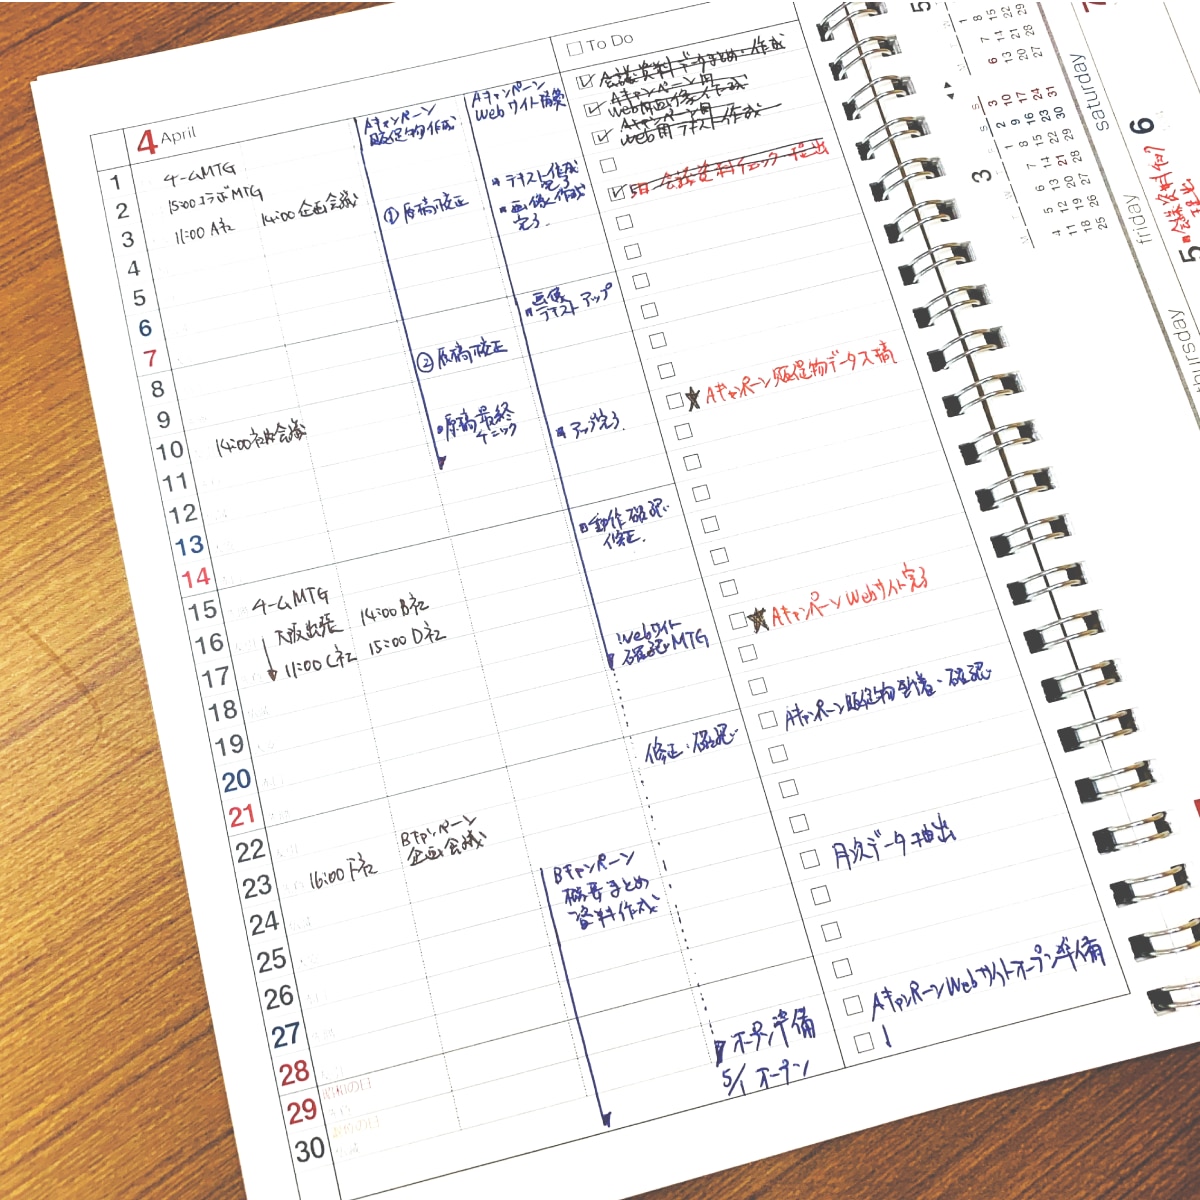 4 April
1
2
3
4
5
6
7
8
9
10
11
12
13
14
15
16
17
18
19
20
21
22
23
24
25
26
27
28
29
30
チームMTG
15:00 コラボMTG
11:00 A社
14:00 企画会議
14:00 社内会議
チームMTG
大阪出張
11:00 C社
14:00 B社
15:00 D社
16:00 F社
Bキャンペーン
企画会議
昭和の日
Aキャンペーン
販促物作成
①原稿校正
②原稿校正
原稿最終
チェック
Aキャンペーン
Webサイト構築
テキスト作成
完了
画像作成
完了.
画像
テキストアップ
アップ完了.
動作確認
修正.
Webサイト
確認MTG
修正・確認
Bキャンペーン
概要まとめ
資料作成
オープン準備
5/1 オープン
To Do
会議資料データまとめ・作成
Aキャンペーン用
web用画像作成
Aキャンペーン用
web用テキスト作成
5日 会議資料チェック・提出
★Aキャンペーン販促物データ入稿
★AキャンペーンWebサイト完了
Aキャンペーン販促物到着・確認
月次データ抽出
AキャンペーンWebサイトオープン準備
3
5
6
saturday
friday
thursday
5
会議資料
提出